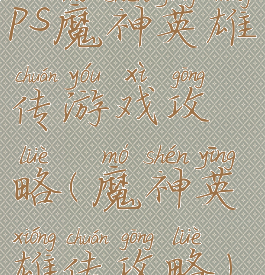 PS魔神英雄
chuán yóu xì gōng
传游戏攻
lüè mó shén yīng
略(魔神英
xióng chuán gōng lüè
雄传攻略)